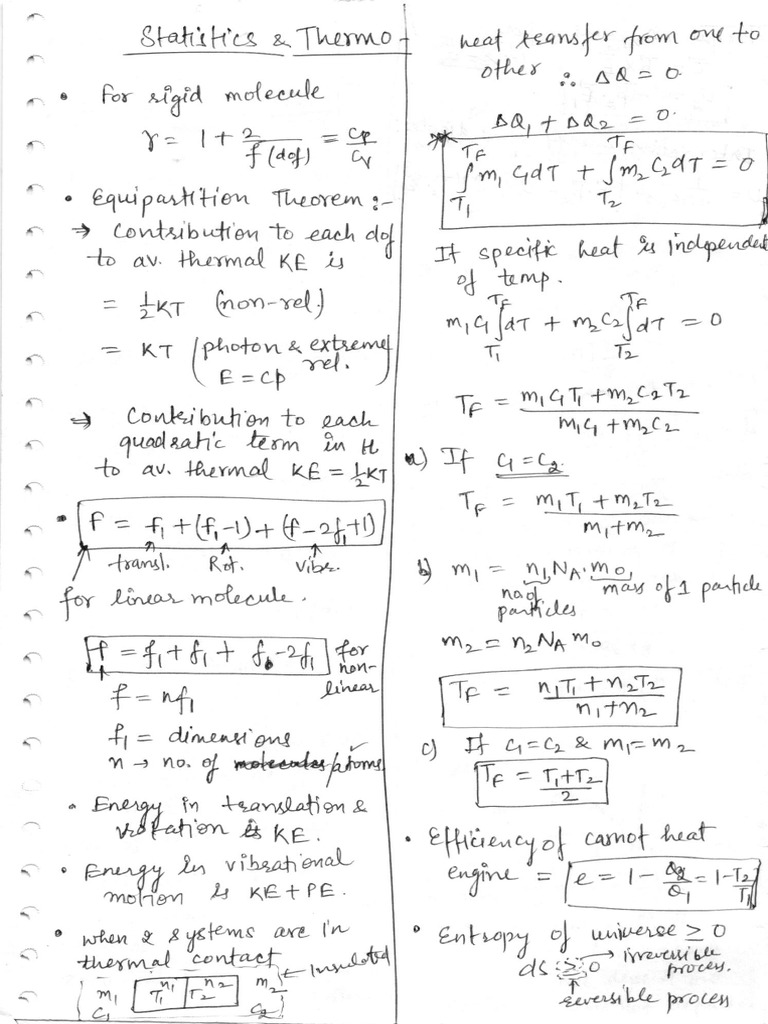 Statistics & Thermo -
• For rigid molecule
γ = 1 + 2/f(dof) = Cp/Cv
• Equipartition Theorem :-
⇒ Contribution to each dof
to av. thermal KE is
= 1/2 KT (non-rel.)
= KT (photon & extreme rel. E = cp)
⇒ Contribution to each
quadratic term in H
to av. thermal KE = 1/2 KT
• f = f₁ + (f₁-1) + (f-2f₁+1)
transl. Rot. Vibr.
for linear molecule.
f = f₁ + f₁ + f-2f₁ for non-linear
f = nf₁
f₁ = dimensions
n → no. of molecules/atoms
• Energy in translation &
rotation is KE.
• Energy in vibrational
motion is KE + PE.
• when 2 systems are in
thermal contact
← Insulated
m₁ T₁ n₁ T₂ n₂ m₂
C₁ C₂
heat transfer from one to
other ∴ ΔQ = 0.
ΔQ₁ + ΔQ₂ = 0.
* ∫_{T₁}^{T_F} m₁C₁dT + ∫_{T₂}^{T_F} m₂C₂dT = 0
If specific heat is independent
of temp.
m₁C₁ ∫_{T₁}^{T_F} dT + m₂C₂ ∫_{T₂}^{T_F} dT = 0
T_F = (m₁C₁T₁ + m₂C₂T₂)/(m₁C₁ + m₂C₂)
a) If C₁ = C₂
T_F = (m₁T₁ + m₂T₂)/(m₁ + m₂)
b) m₁ = n₁N_A · m₀,
no of particles mass of 1 particle
m₂ = n₂N_A m₀
T_F = (n₁T₁ + n₂T₂)/(n₁ + n₂)
c) If C₁ = C₂ & m₁ = m₂
T_F = (T₁ + T₂)/2
• Efficiency of carnot heat
engine = e = 1 - Q₂/Q₁ = 1 - T₂/T₁
• Entropy of universe ≥ 0
ds ≥ 0 → irreversible process.
reversible process